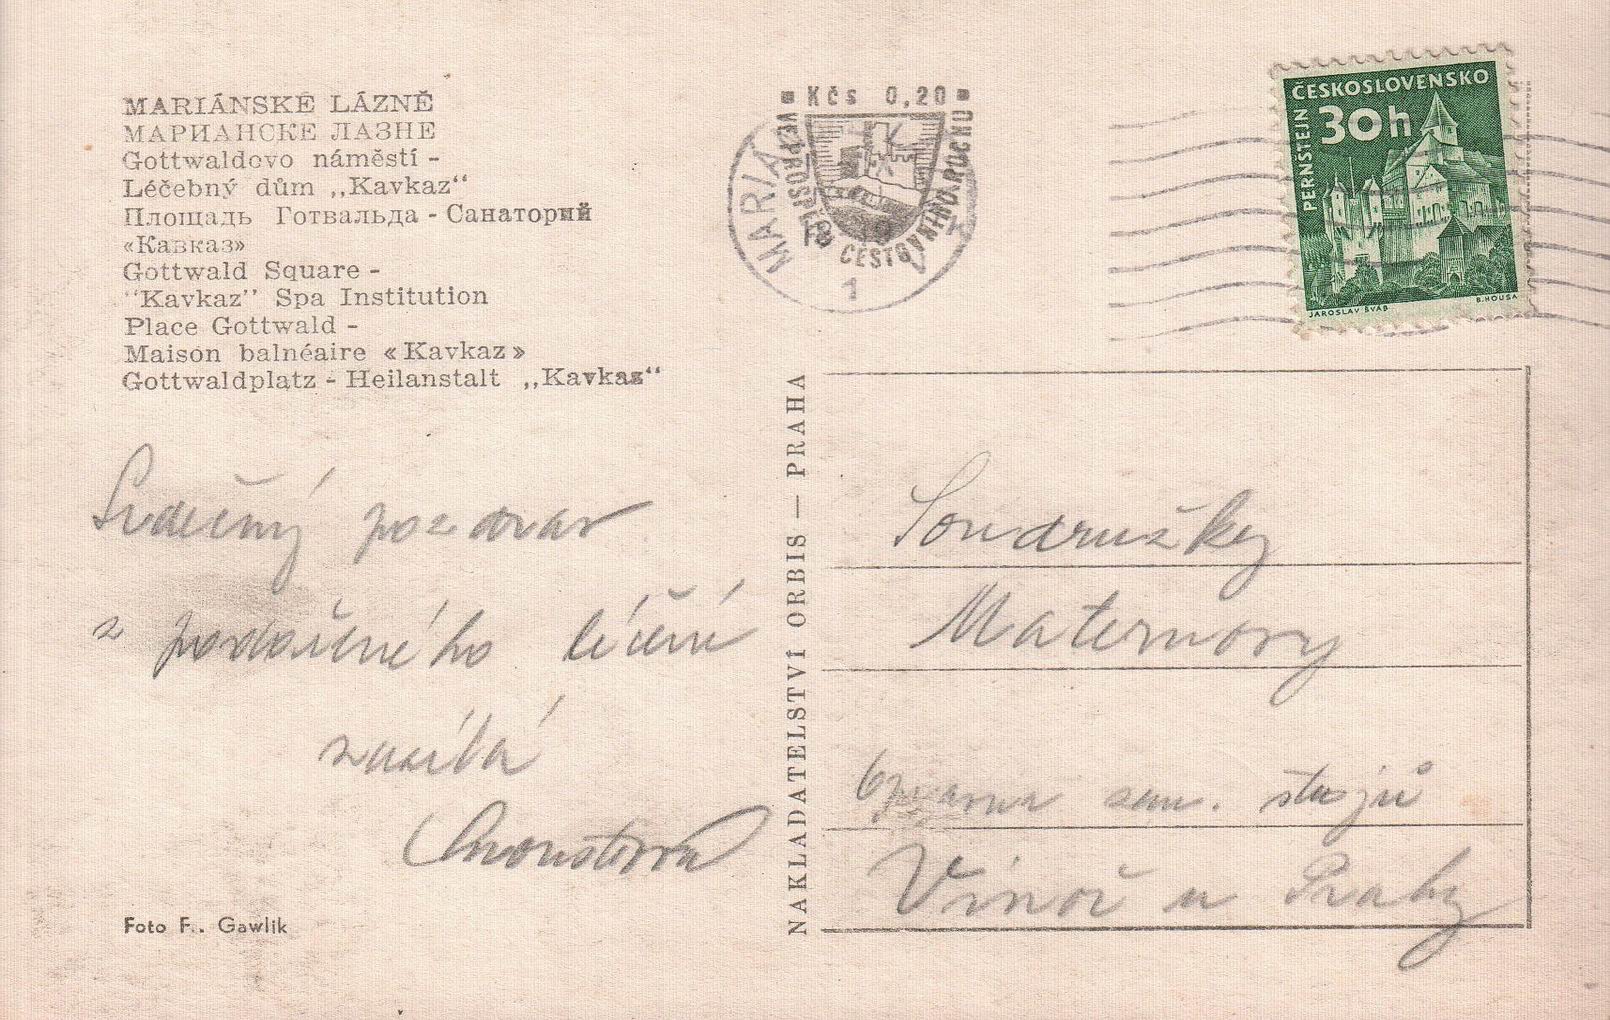 MARIÁNSKÉ LÁZNĚ
МАРИАНСКЕ ЛАЗНЕ
Gottwaldovo náměstí -
Léčebný dům „Kavkaz“
Площадь Готвальда - Санаторий
«Кавказ»
Gottwald Square -
"Kavkaz" Spa Institution
Place Gottwald -
Maison balnéaire «Kavkaz»
Gottwaldplatz - Heilanstalt „Kavkaz“
Srdečný pozdrav
z podařeného léčení
zasílá
Foto F. Gawlik
NAKLADATELSTVÍ ORBIS — PRAHA
Kčs 0,20
VE PROSPĚCH CESTOVNÍHO RUCHU
MARIÁ
1
ČESKOSLOVENSKO
30h
PERNŠTEJN
JAROSLAV ŠVÁB
B. HOUSA
Soudružky
Maternovy
Opravna zem. strojů
Vinoř u Prahy